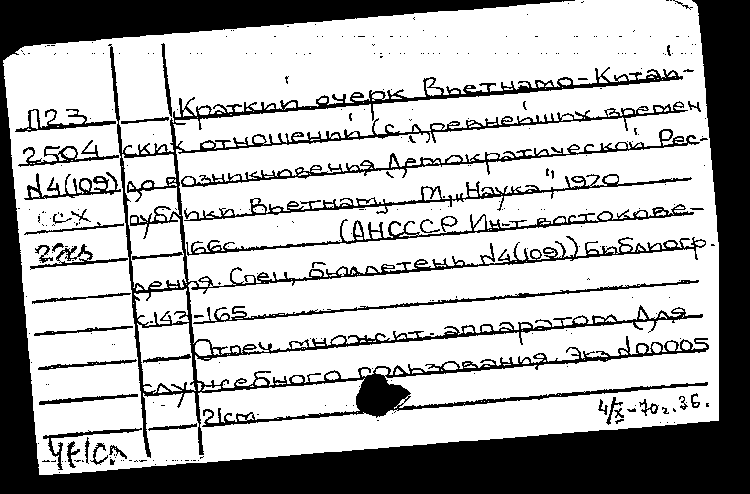 П23 Краткий очерк Вьетнамо-Китай-
2504 ских отношений (с древнейших времен
N4(109) до возникновения Демократической Рес-
публики Вьетнам. М., "Наука", 1970
166с. (АНСССР Ин-т востокове-
дения. Спец. бюллетень N4(109)) Библиогр.
с.147-165
Отпеч. множит. аппаратом Для
служебного пользования. Экз N00005
21см
4/X-70г. 36.